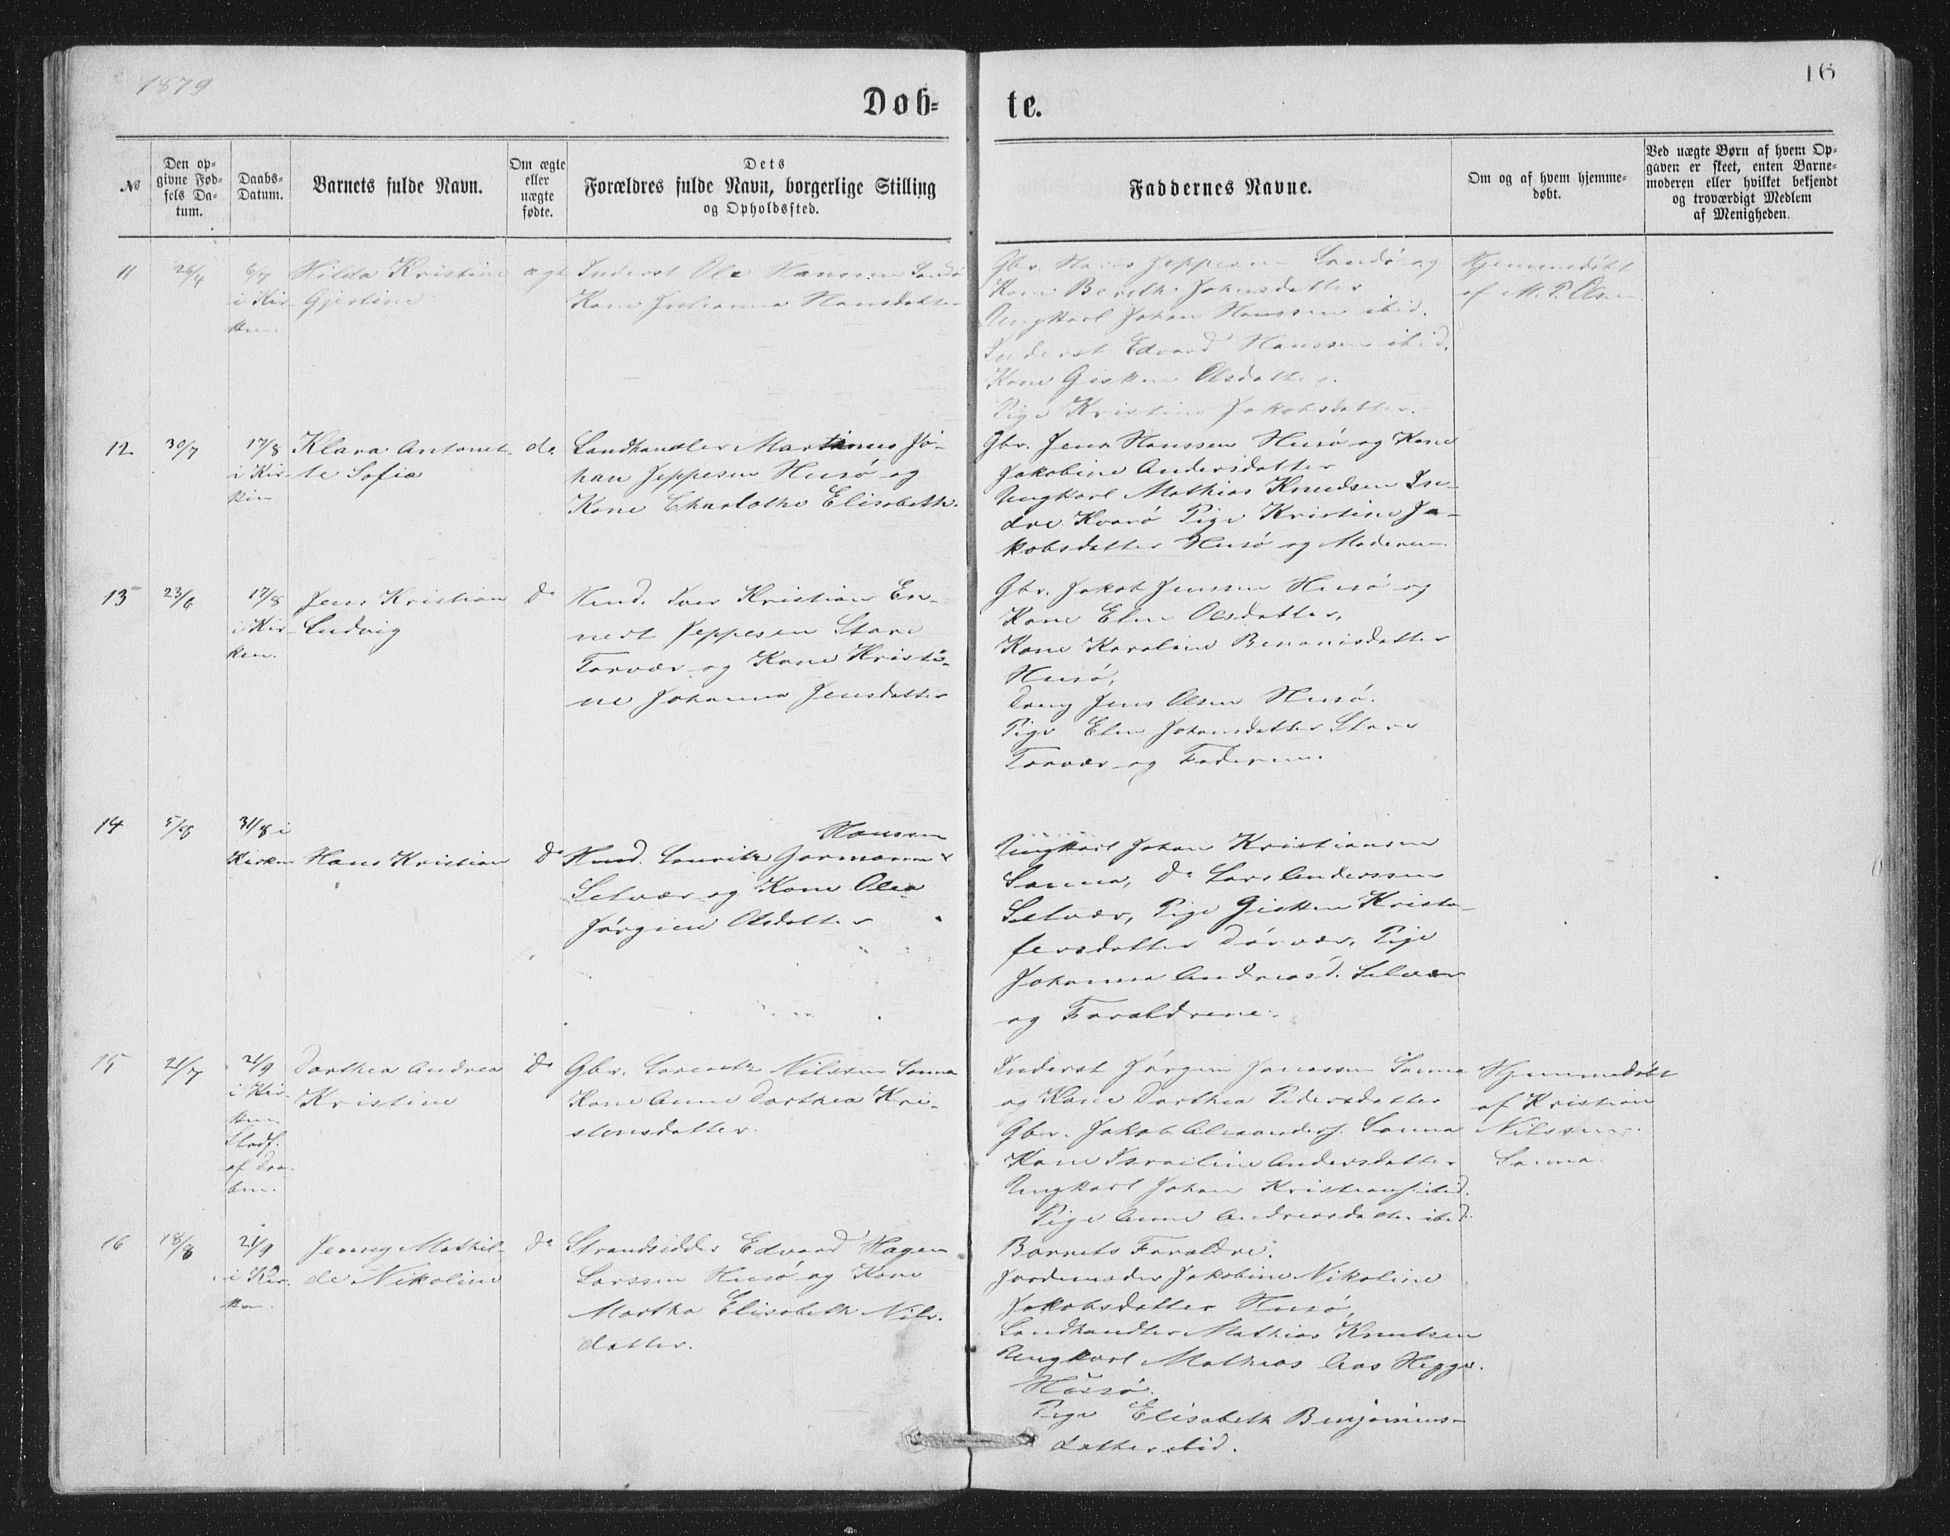 1879
16
Døb=
te.
№
Den op=
givne Fød=
sels Da=
tum.
Daabs=
Datum.
Barnets fulde Navn.
Om ægte
eller
uægte
fødte.
Dets
Forældres fulde Navn, borgerlige Stilling
og Opholdssted.
Faddernes Navne.
Om og af hvem hjemme=
døbt.
Ved uægte Børn af hvem Op=
gaven er skeet, enten Barne=
moderen eller hvilket bekjendt
og troværdigt Medlem
af Menigheden.
11
26/4
6/7
i Kir-
ken.
Hilda Kristine
Gjertine
ægt
Inderst Ole Hanssen Sandø
Kone Julianna Hansdatter
Gbr. Hans Jeppesen Sandø og
Kone Berethe Johnsdatter
Ungkarl Johan Hanssen ibid.
Inderst Edvard Hanssen ibid.
Kone Gisken Olsdatter.
Pige Kristine Jakobsdatter.
Hjemmedøbt
af M. P. Olsen
12
30/7
17/8
i Kir-
ken
Klara Antonet-
te Sofie
do
Landhandler Martinus Jo-
han Jeppesen Husø og
Kone Charlothe Elisabeth.
Gbr. Jens Hanssen Husø og Kone
Jakobine Andersdatter
Ungkarl Mathias Knudsen In-
dre Kvarø Pige Kristine Ja-
kobsdatter Husø og Moderen.
13
23/6
17/8
i Kir-
ken.
Jens Kristian
Ludvig
Do
Hmd. Iver Kristian Er-
nest Jeppesen Store
Torvær og Kone Kristi-
ne Johanna Jensdatter
Gbr. Jakob Jenssen Husø og
Kone Elen Olsdatter,
Kone Karoline Benonisdatter
Husø,
Dreng Jens Olsen Husø.
Pige Elen Johansdatter Store
Torvær og Faderen.
14
5/8
31/8 i
Kirken
Hans Kristian
Do
Hanssen
Hmd. Lauritz Gormann x
Selvær og Kone Olea
Jørgine Olsdatter
Ungkarl Johan Kristiansen
Sanna, Do Lars Anderssen
Selvær, Pige Gisken Kristo-
fersdatter Dørvær, Pige
Johanna Andreasd. Selvær
og Forældrene.
15
21/7
21/9
i Kir-
ken
Stadf.
af Daa-
ben.
Dorthea Andrea
Kristine
Do
Gbr. Lorentz Nilssen Sanna
Kone Anne Dorthea Kri-
stensdatter.
Inderst Jørgen Jonassen Sanna
og Kone Dorthea Pedersdatter
Gbr. Jakob Alexanders. Sanna
Kone Israeline Andersdatter
Ungkarl Johan Kristians. ibid.
Pige Anne Andreasdatter ibid.
Hjemmedøbt
af Kristian
Nilssen
Sanna.
16
18/8
21/9
i Kir-
ken.
Jenny Mathil-
de Nikoline
Do
Strandsidder Edvard Hagen
Larssen Husø og Kone
Martha Elisabeth Nils-
datter.
Barnets Forældre.
Jordemoder Jakobine Nikoline
Jakobsdatter Husø,
Landhandler Mathias Knutsen
Ungkarl Mathias Aas Hegge.
Husø.
Pige Elisabeth Benjamins-
datter ibid.